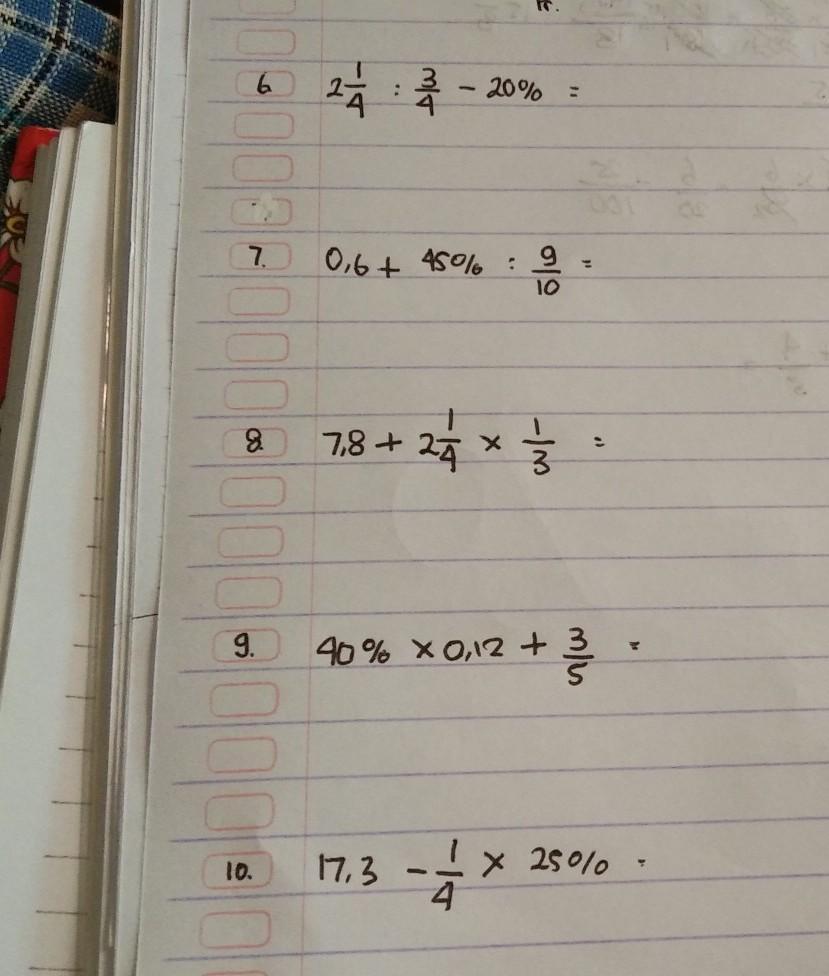 6 2 1/4 : 3/4 - 20% =
7. 0,6 + 45% : 9/10 =
8. 7,8 + 2 1/4 × 1/3 =
9. 40% × 0,12 + 3/5 =
10. 17,3 - 1/4 × 25% =